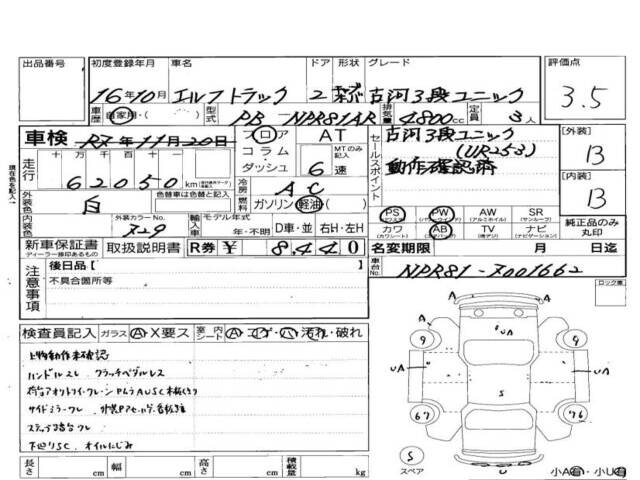 出品番号 初度登録年月 車名 ドア 形状 グレード 評価点
16年10月 エルフトラック 2 古河3段ユニック 3.5
車歴 自家用・( ) 型式 PB-NPR81AR 排気量 4800cc 定員 3人
車検 R7年11月20日 フロア AT 古河3段ユニック [外装]
コラム MTのみ記入 (UR253) B
走行 十万 万 千 百 十 一 ダッシュ 6速 セールスポイント 動作確認済
62050 km 冷房 AC [内装]
現在色を記入 外装色 白 色替車は色替と記入 燃料 ガソリン 軽油( ) B
内装色 外装カラーNo. 729 輸入車 モデル年式 年・不明 D車・並 右H・左H
PS PW AW SR
(アルミホイル) (サンルーフ)
カワ AB TV ナビ 純正品のみ丸印
(カワシート) (エアバッグ) (ナビゲーション)
新車保証書 取扱説明書 R券 ¥ 8,440 名変期限 月 日迄
ディーラー捺印あるもの
注意事項 後日品[ ] 車台No. NPR81-7001662
不具合箇所等 ロック車
検査員記入 ガラス A・X要ス 室内シート A・コゲ・穴・汚れ・破れ
上物動作未確認
ハンドルスレ クラッチペダルレス
サイドミラーワレ
下廻りSC オイルにじみ
A A A UA
9 9
UA UA
S
67 76
S
スペア U 小A有・小U有
長さ cm 幅 cm 高さ cm 積載量 kg